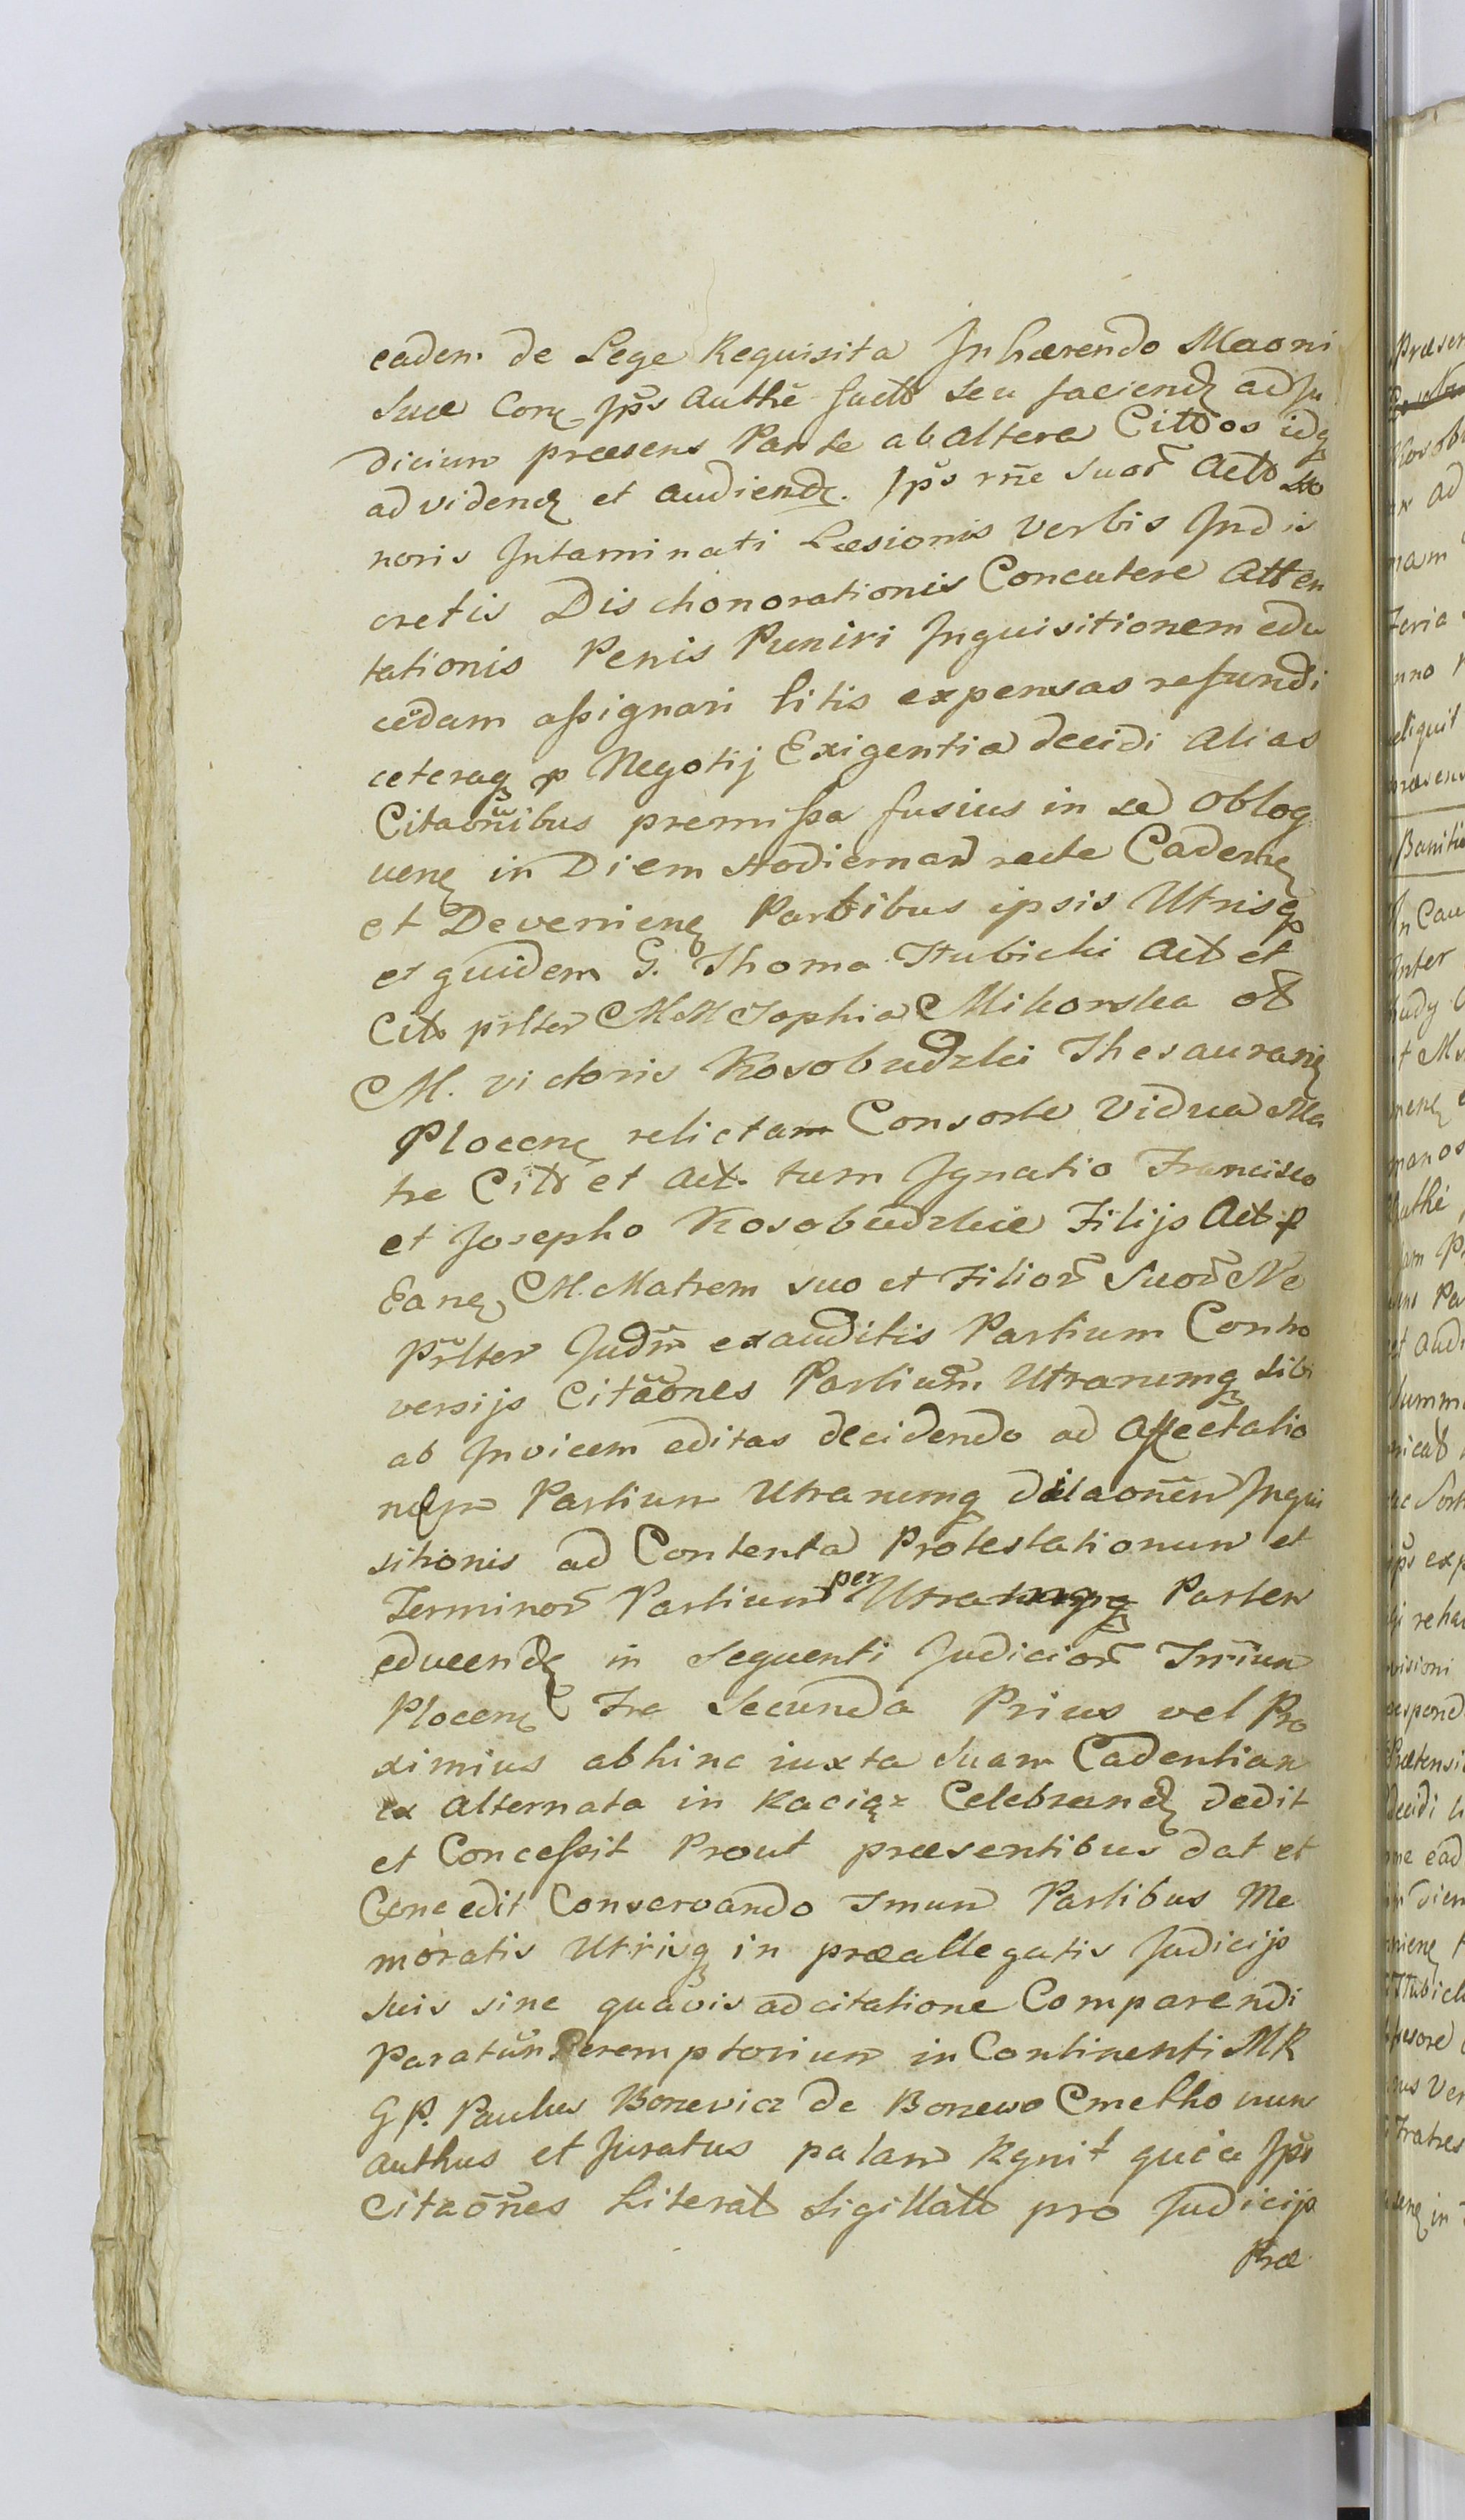 eadem de Lege Requisita Inhærendo Maoni
Suæ Corꝫ Ips Authē factt seu faciendꝫ ad Ju
dicium præsens Parte ab altera Cittos idqꝫ
ad videndꝫ et audiendꝫ. Ips rñe Suor̃ Actt Ho
noris Intaminati Læsionis verbis Indis
cretis Dis chonorationis Concutere atten
tationis Penis Puniri Inquisitionem edu
cēdam assignari litis expensas refundi
ceteraqꝫ p Negotij Exigentia decidi alias
Citaoñibus premissa fusius in se obloq
uenꝫ in Diem Hodiernam recte Cadenꝫ
et Devenienꝫ Partibus ipsis Utrisqꝫ
et quidem G. Thoma Stubicki Act et
Citt prlter M M Sophia Mikorska ol
M. victoris Kosobudzki Thesaurarij
Plocenꝫ relictam Consorte Vidua Ma
tre Citt et Act. tum Ignatio Francisco
et Josepho Kosobudzkie Filijs Act p
Eanꝫ M. Matrem suo et Filior̃ Suor̃ Ne
prlter Judm̃ exauditis Partium Contro
versijs Citãones Partium Utrarumqꝫ sibi
ab Invicem editas decidendo ad affectatio
nem Partium Utrarumqꝫ dilaoñem Inqui
sitionis ad Contenta Protestationum et
Terminor̃ Partium per Utramqꝫ Partem
educendꝫ in sequenti Judicior̃ Trium
Plocenꝫ Fra Secunda Prius vel Pro
ximius abhinc iuxta suam Cadentiam
ex alternata in Raciąz Celebrandꝫ dedit
et Concessit Prout præsentibus dat et
Concedit Conservando Tmum Partibus Me
moratis Utrisqꝫ in præallegatis Judicijs
suis sine quavis adcitatione Comparendi
Paratum Peremptorium in Continenti MR
G P. Paulus Bonewicz de Bonewo Cmetho nun
authus et Juratus palam Rgnit quia Ips
Citaoñes Literatt Sigillatt pro Judicijs
Præ